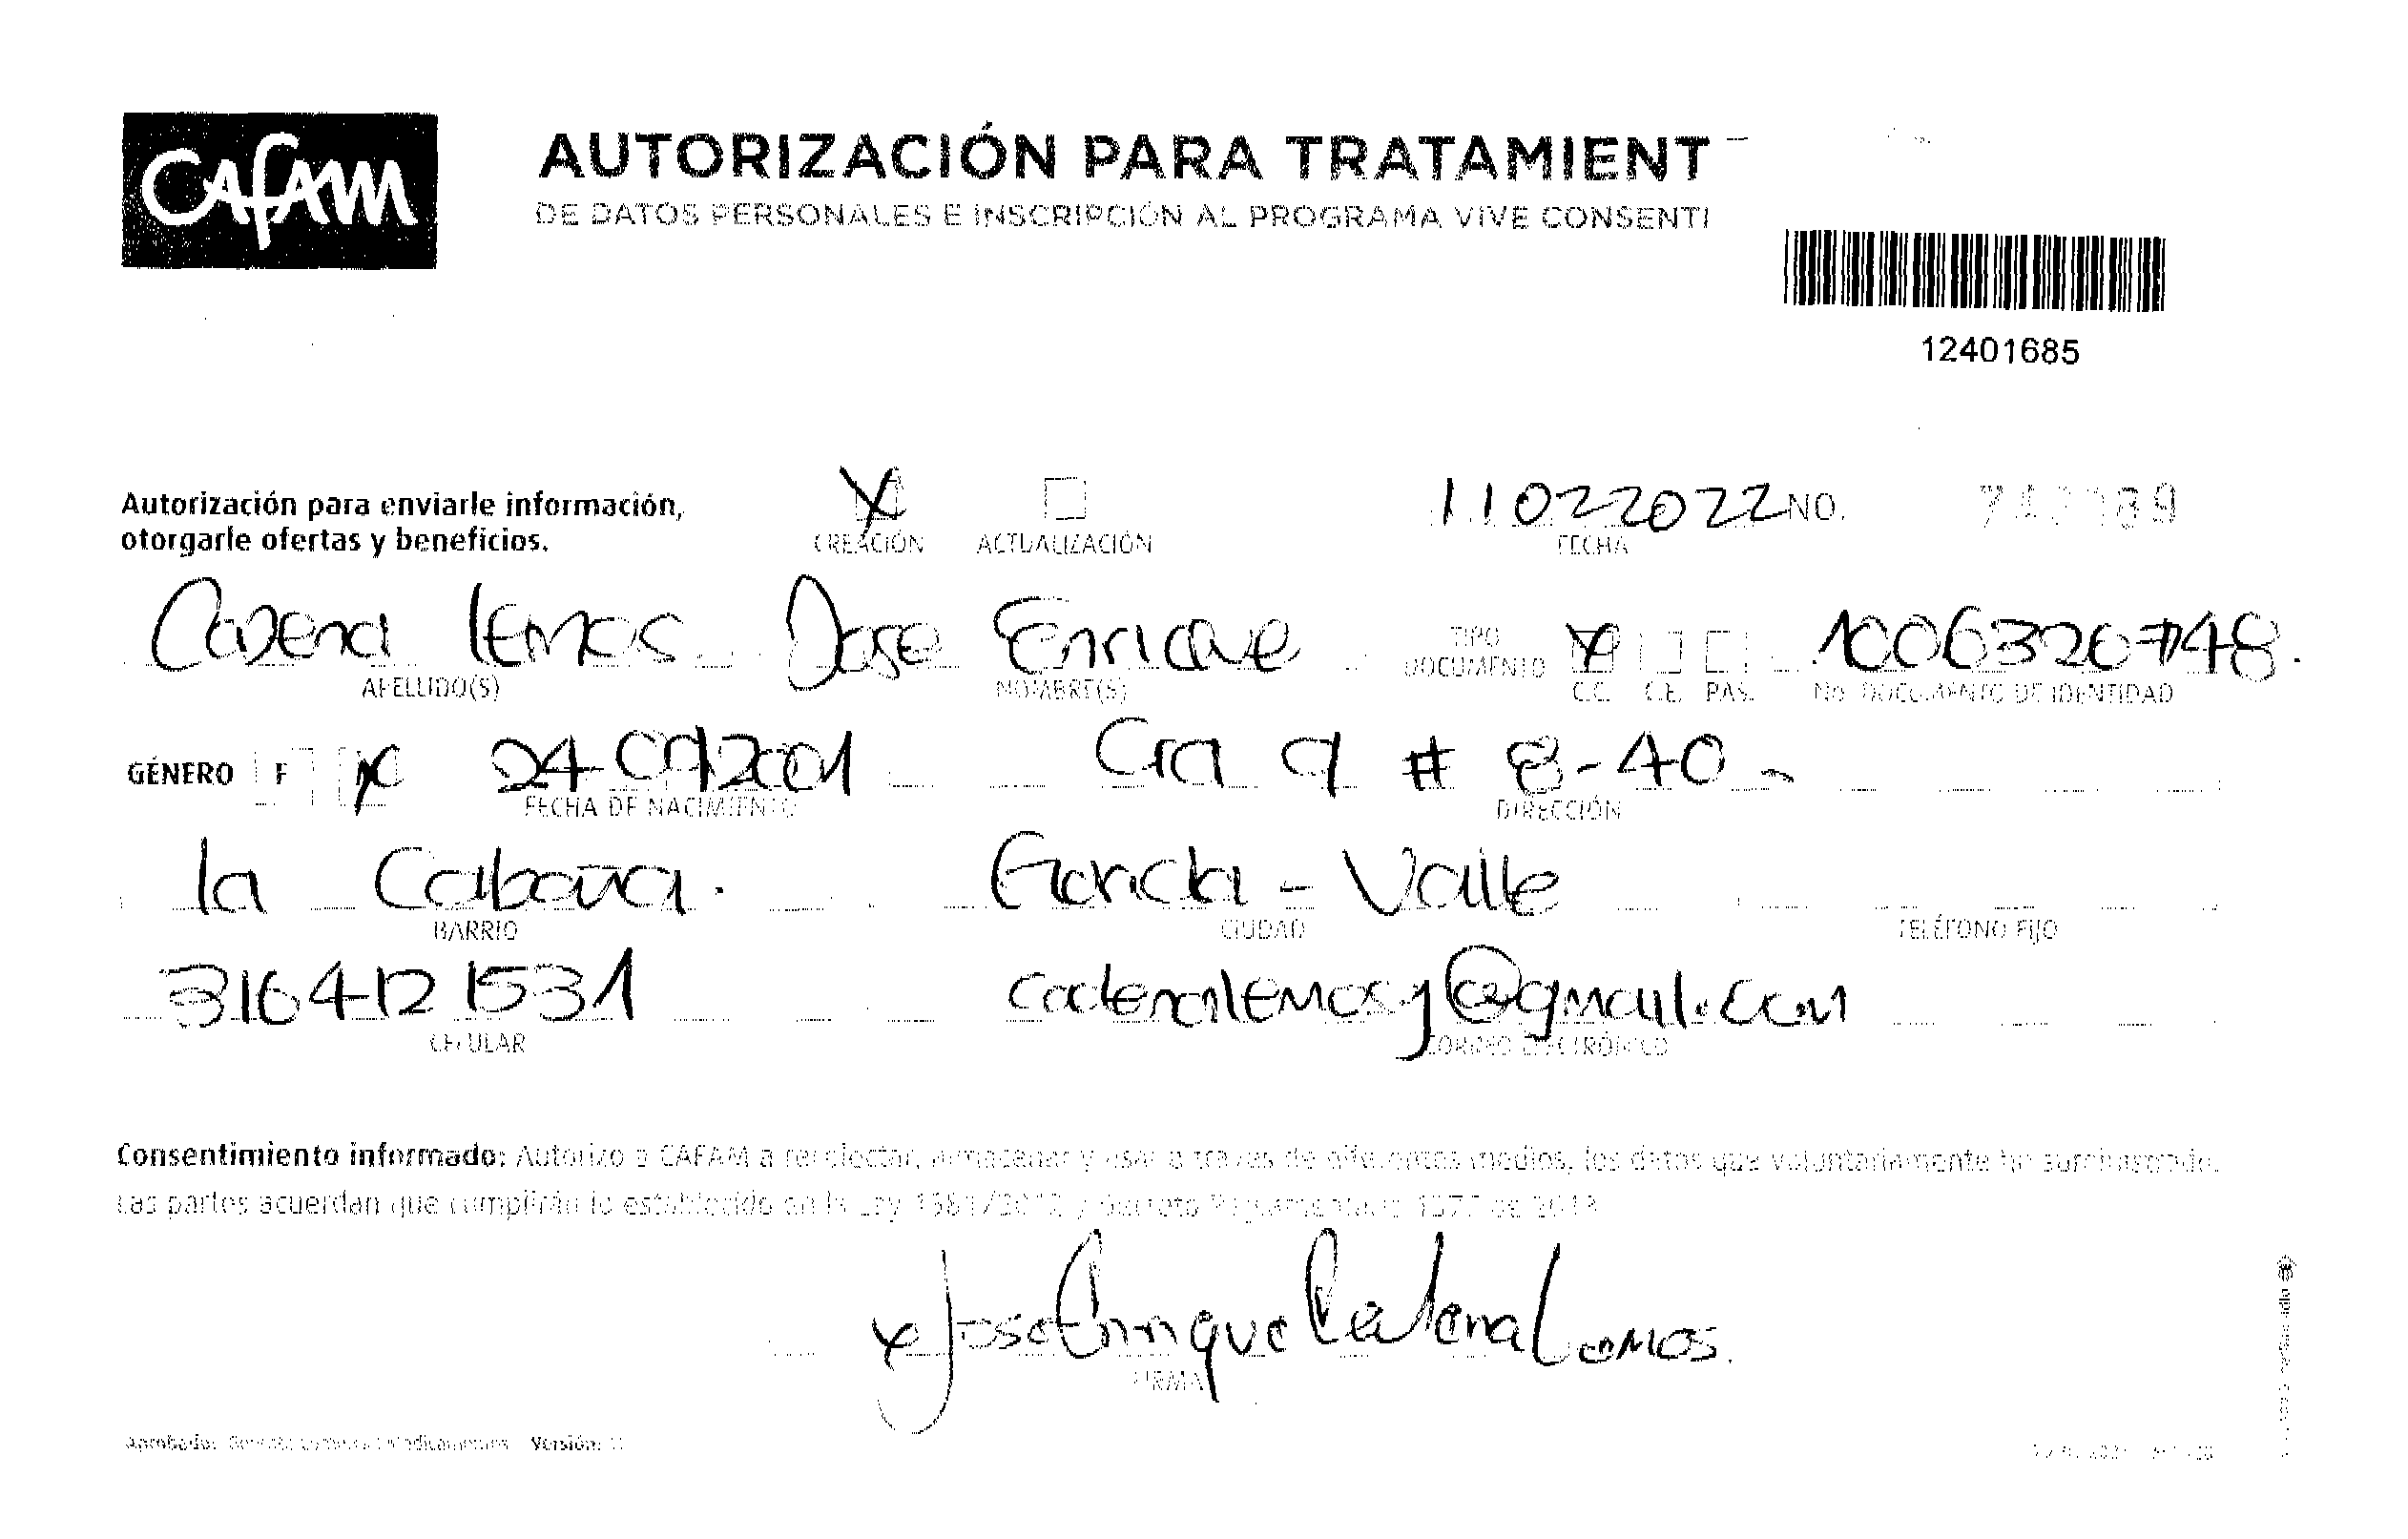 CAFAM
AUTORIZACIÓN PARA TRATAMIENT
DE DATOS PERSONALES E INSCRIPCIÓN AL PROGRAMA VIVE CONSENTI
12401685
Autorización para enviarle información,
otorgarle ofertas y beneficios.
X CREACIÓN ACTUALIZACIÓN
11022022 NO.
FECHA
Cadena lemos Jose Enrique TIPO DOCUMENTO X 1006320748.
APELLIDO(S) NOMBRE(S) C.C. C.E. PAS. No. DOCUMENTO DE IDENTIDAD
GÉNERO F X 24092001 Cra 9 # 8-40-
FECHA DE NACIMIENTO DIRECCIÓN
la Cabaña. - Valle
BARRIO CIUDAD TELÉFONO FIJO
3164121531 cadenalemosj@gmail.com
CELULAR CORREO ELECTRÓNICO
Consentimiento informado: Autorizo a CAFAM a recolectar, almacenar y usar a través de diferentes medios, los datos que voluntariamente he suministrado.
Las partes acuerdan que cumplirán lo establecido en la Ley 1581/2012 y Decreto Reglamentario 1377 de 2013
x Jose Enrique Cadena Lemos.
FIRMA
Aprobado: Versión: